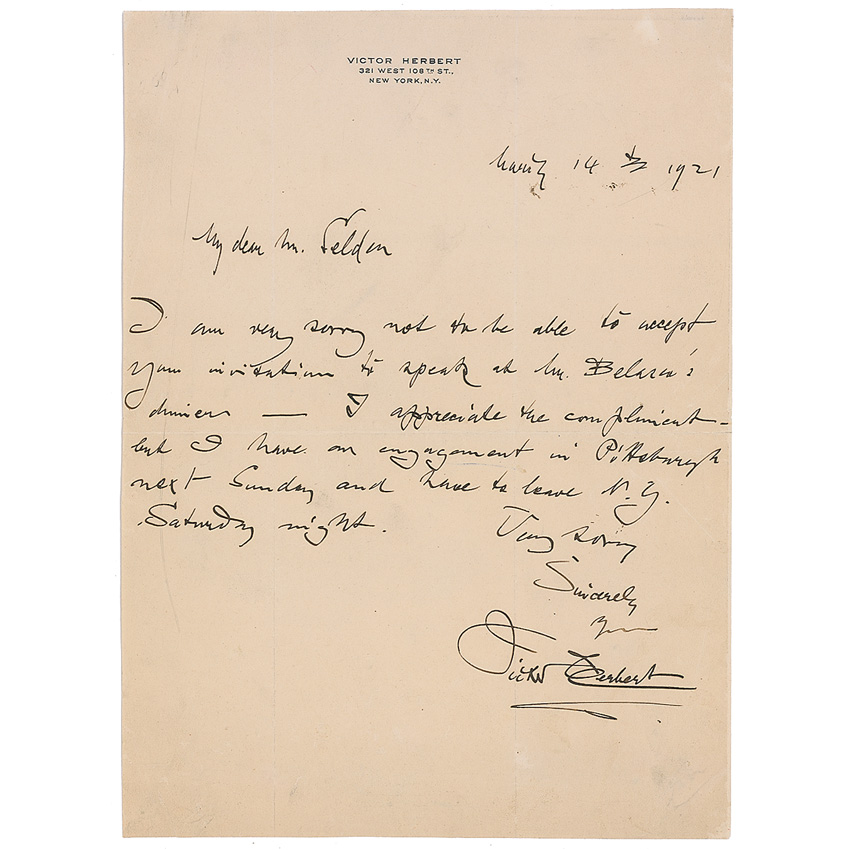 VICTOR HERBERT
321 WEST 108TH ST.,
NEW YORK, N.Y.
March 14th 1921
My dear Mr. Feldon
I am very sorry not to be able to accept
your invitation to speak at Mr. Belasco's
dinner — I appreciate the compliment -
but I have an engagement in Pittsburgh
next Sunday and have to leave N. Y.
Saturday night.
Very sorry
Sincerely
Yours
Victor Herbert